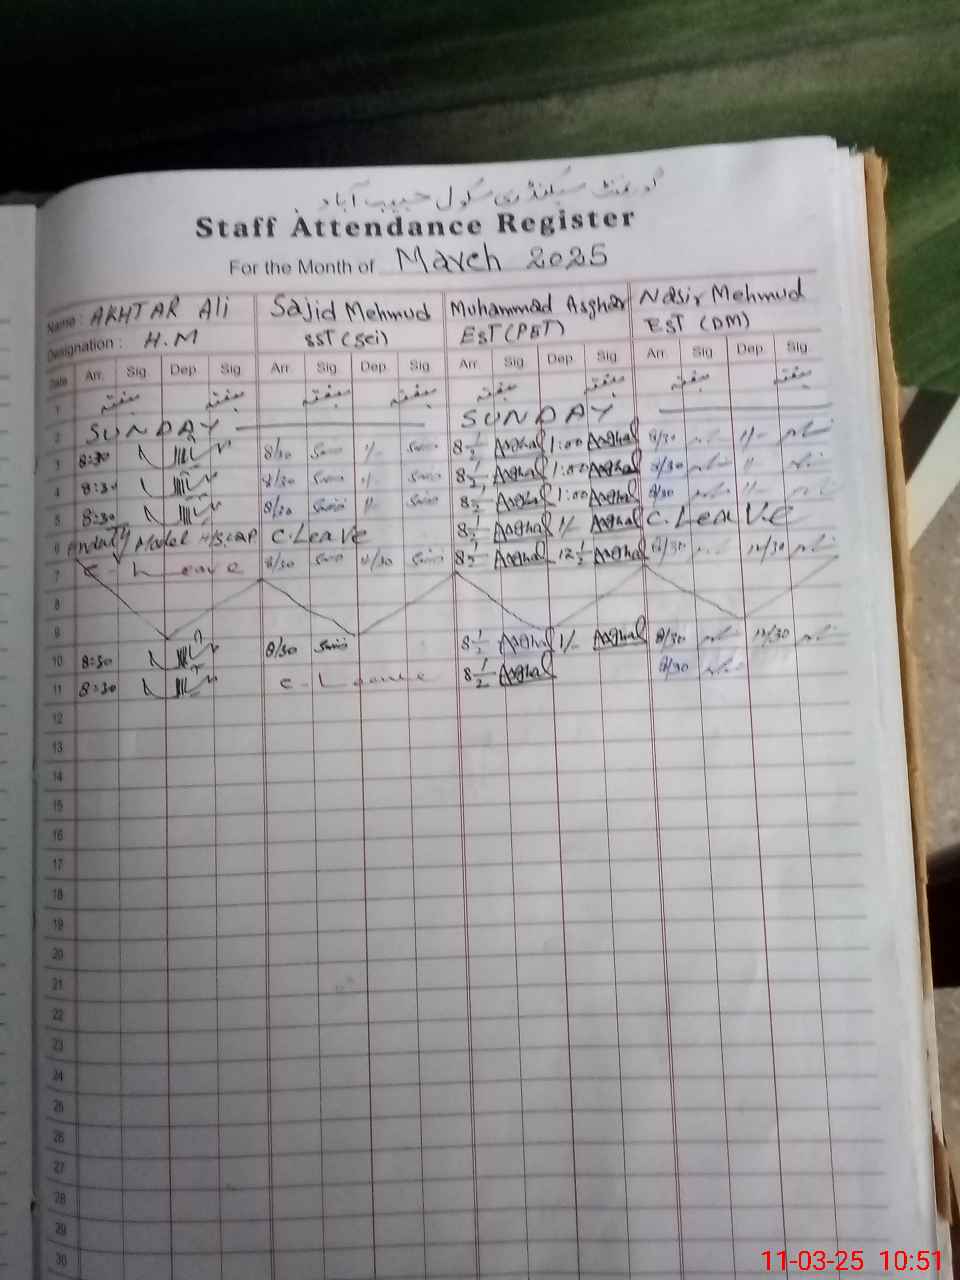 گورنمنٹ سیکنڈری سکول حبیب آباد
Staff Attendance Register
For the Month of March 2025
Name: AKHTAR Ali Sajid Mehmud Muhammad Asghar Nasir Mehmud
Designation: H.M SST (Sci) EST (PET) EST (DM)
Date Arr. Sig Dep. Sig Arr. Sig Dep. Sig Arr. Sig Dep. Sig Arr. Sig Dep. Sig
1 ہفتہ ہفتہ ہفتہ ہفتہ ہفتہ ہفتہ ہفتہ ہفتہ
2 SUNDAY SUNDAY
3 8:30 8/30 1/- 8 1/2 Asghal 1:00 Asghal 8/30 1/-
4 8:30 8/30 1/- 8 1/2 Asghal 1:00 Asghal 8/30 1/-
5 8:30 8/30 1/- 8 1/2 Asghal 1:00 Asghal 8/30 1/-
6 Model C. Leave 8 1/2 Asghal 1/- Asghal C. Leave
7 C- Leave 8/30 12/30 8 1/2 Asghal 12 1/2 Asghal 8/30 12/30
8
9
10 8:30 8/30 8 1/2 Asghal 1/- Asghal 8/30 12/30
11 8:30 C-Leave 8 1/2 Asghal 8/30
12
13
14
15
16
17
18
19
20
21
22
23
24
25
26
27
28
29
30
11-03-25 10:51